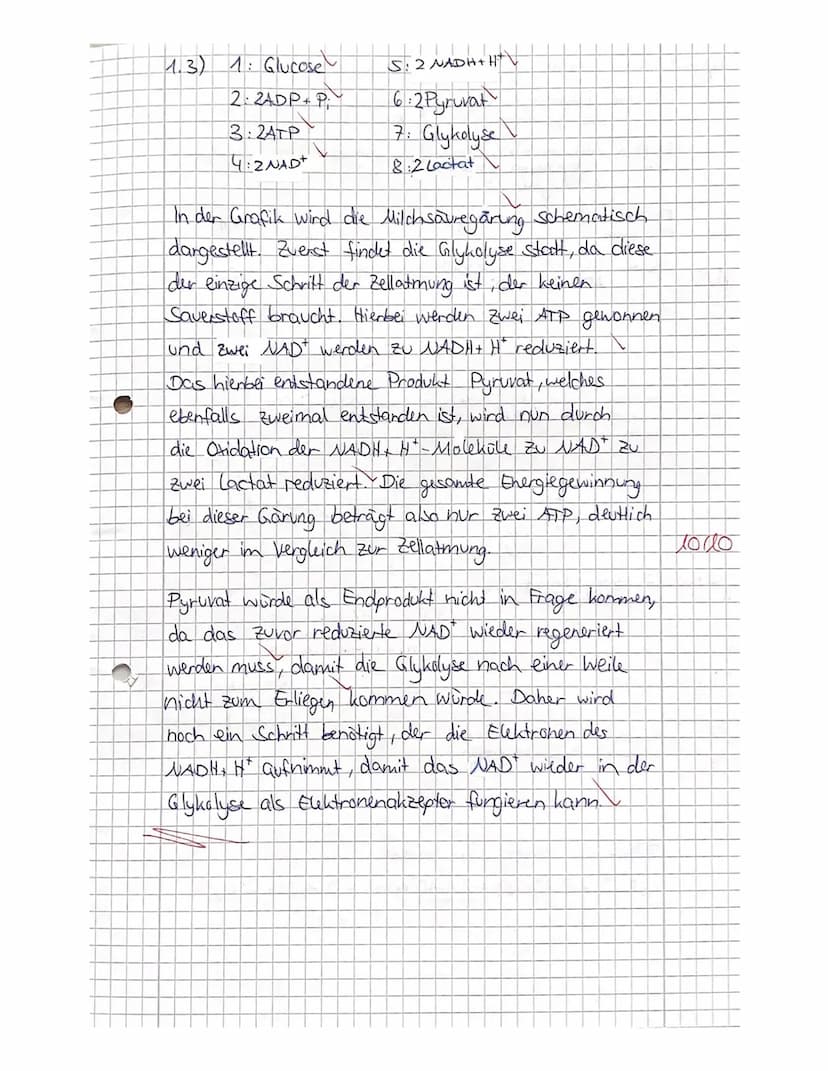 1.3) 1: Glucose 5: 2 NADH + H⁺
2: 2ADP + Pi 6: 2Pyruvat
3: 2ATP 7: Glykolyse
4: 2 NAD⁺ 8: 2 Lactat
In der Grafik wird die Milchsäuregärung schematisch
dargestellt. Zuerst findet die Glykolyse statt, da diese
der einzige Schritt der Zellatmung ist, der keinen
Sauerstoff braucht. Hierbei werden zwei ATP gewonnen
und zwei NAD⁺ werden zu NADH + H⁺ reduziert.
Das hierbei entstandene Produkt Pyruvat, welches
ebenfalls zweimal entstanden ist, wird nun durch
die Oxidation der NADH + H⁺-Moleküle zu NAD⁺ zu
zwei Lactat reduziert. Die gesamte Energiegewinnung
bei dieser Gärung beträgt also nur zwei ATP, deutlich
weniger im Vergleich zur Zellatmung. 10/10
Pyruvat würde als Endprodukt nicht in Frage kommen,
da das zuvor reduzierte NAD⁺ wieder regeneriert
werden muss, damit die Glykolyse nach einer Weile
nicht zum Erliegen kommen würde. Daher wird
noch ein Schritt benötigt, der die Elektronen des
NADH + H⁺ aufnimmt, damit das NAD⁺ wieder in der
Glykolyse als Elektronenakzeptor fungieren kann.